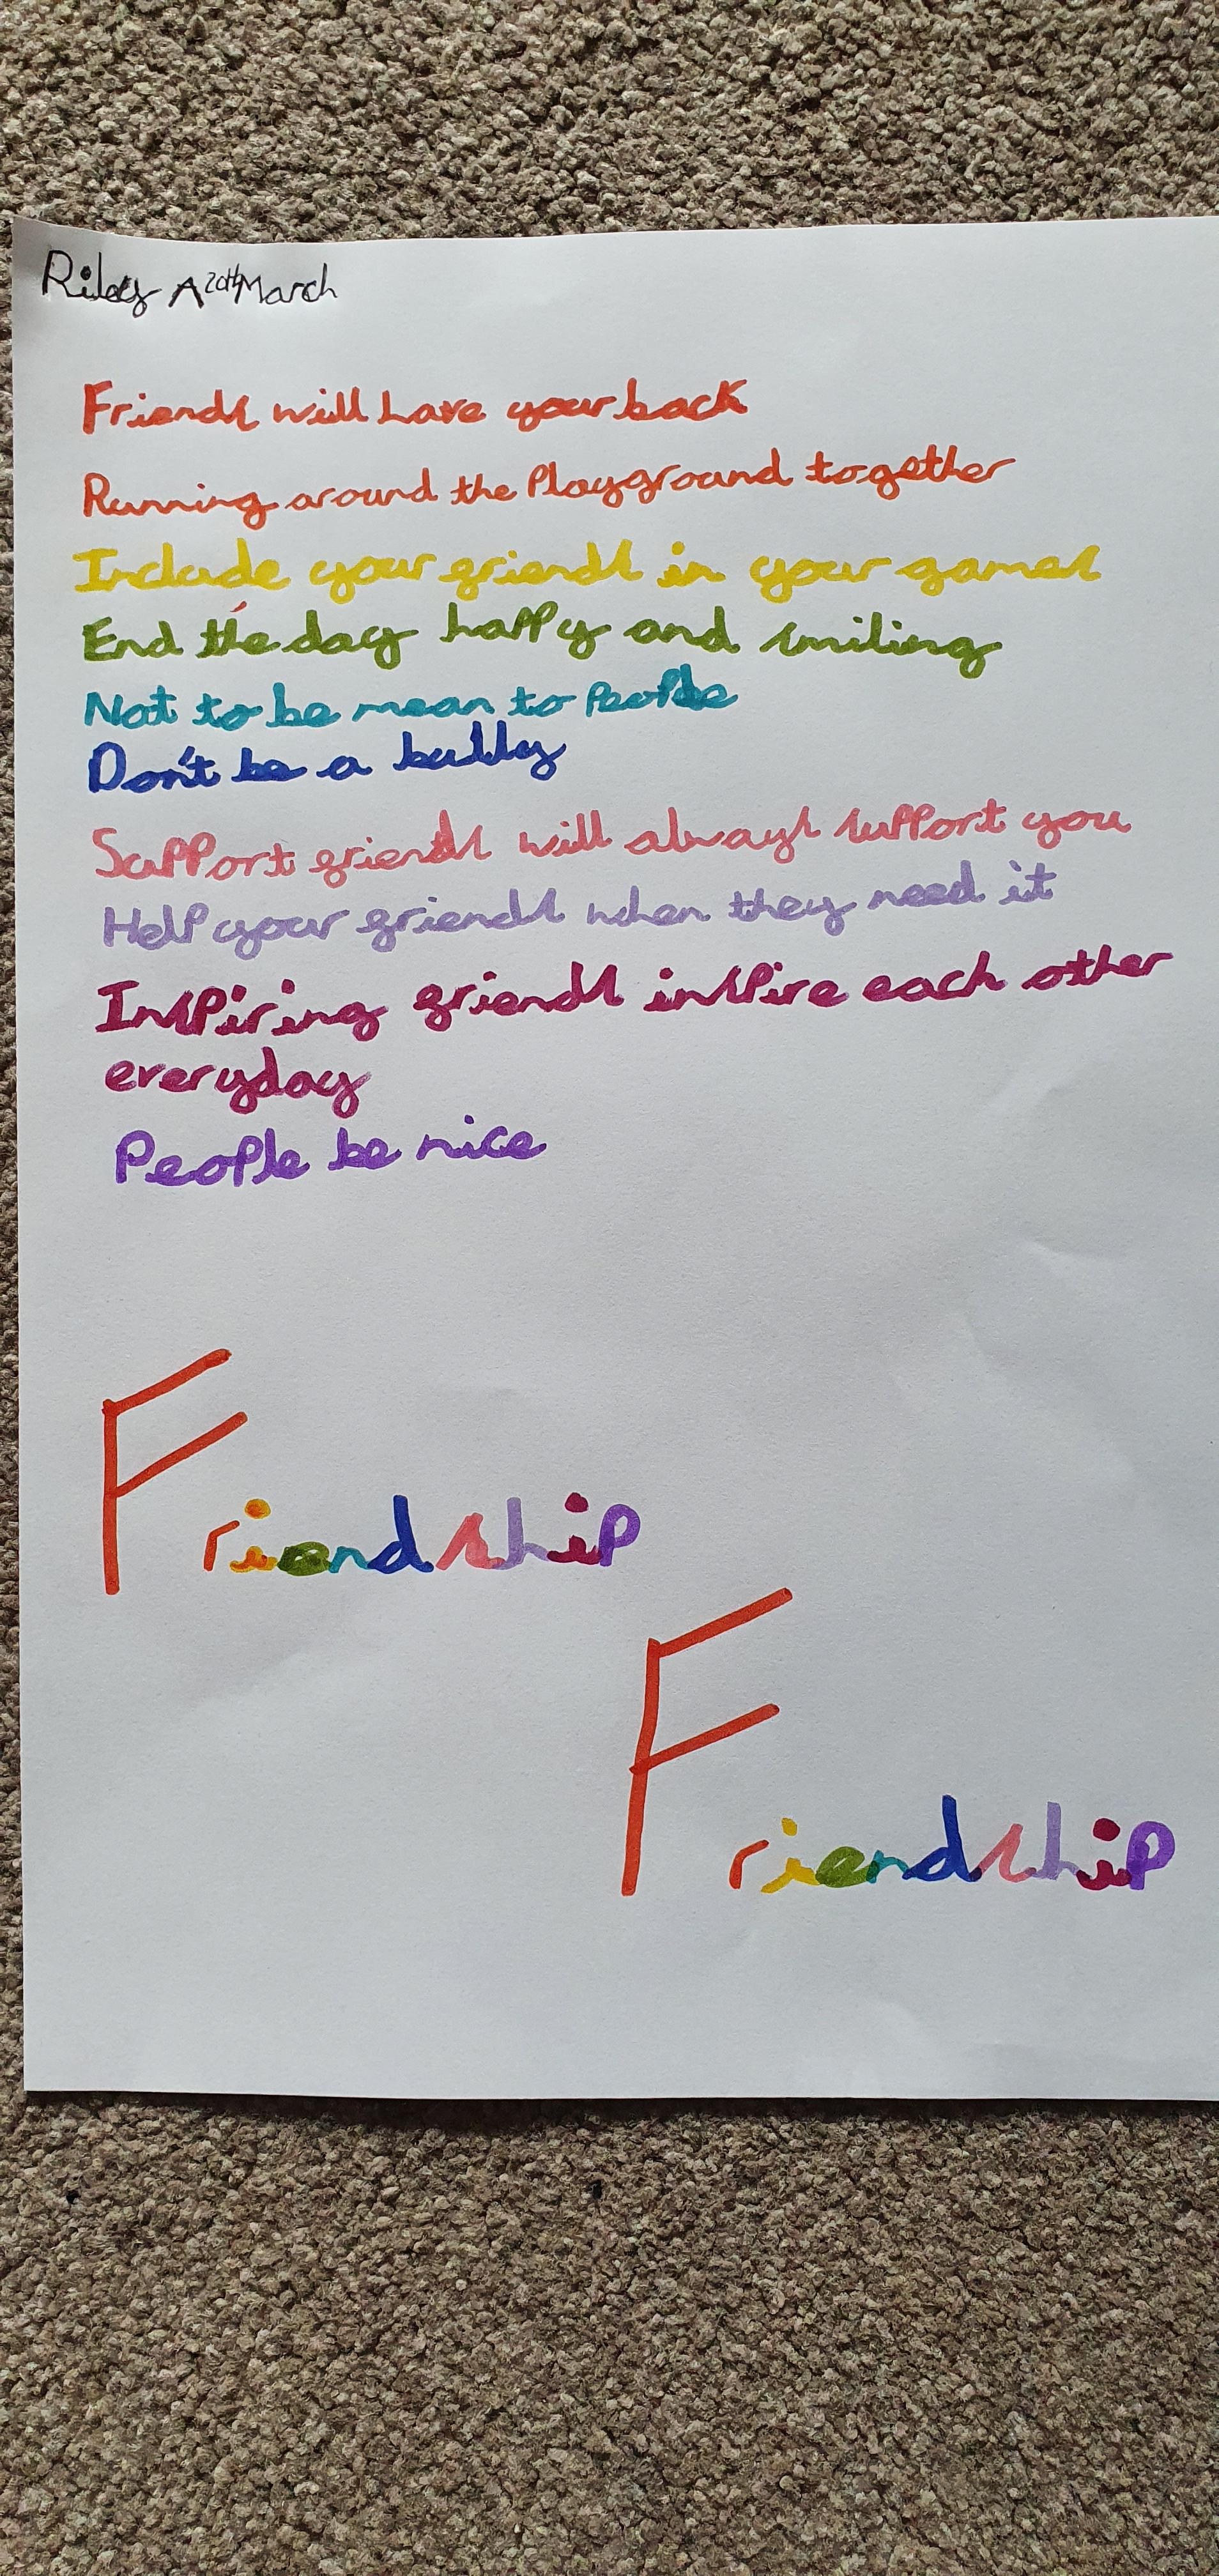 Riley A 20th March
Friends will have your back
Running around the Playground together
Include your friends in your games
End the day happy and smiling
Not to be mean to People
Don't be a bully
Support friends will always support you
Help your friends when they need it
Inspiring friends inspire each other
everyday
People be nice
Friendship
Friendship